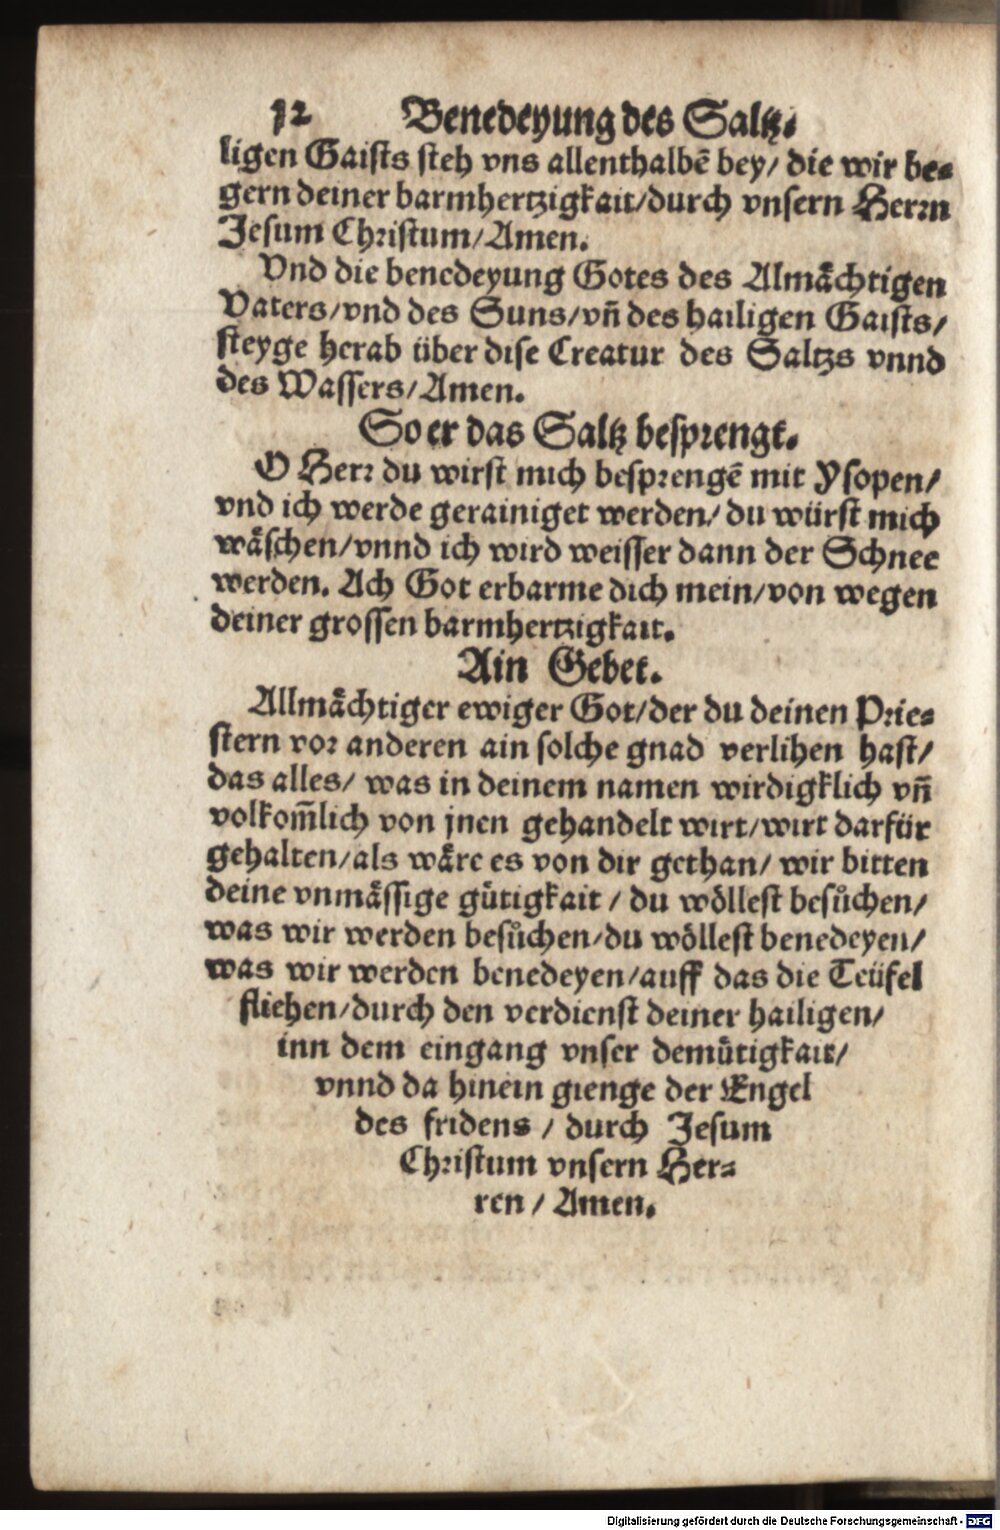 12 Benedeyung des Saltz.
ligen Gaists steh vns allenthalbē bey/ die wir be⸗
gern deiner barmhertzigkait/durch vnsern Herrn
Jesum Christum/Amen.
Vnd die benedeyung Gotes des Almaͤchtigen
Vaters/vnd des Suns/vn̄ des hailigen Gaists/
steyge herab über dise Creatur des Saltzs vnnd
des Wassers/Amen.
So er das Saltz besprengt.
O Herr du wirst mich besprengē mit Ysopen/
vnd ich werde gerainiget werden/ du würst mich
waͤschen/vnnd ich wird weisser dann der Schnee
werden. Ach Got erbarme dich mein/von wegen
deiner grossen barmhertzigkait.
Ain Gebet.
Allmaͤchtiger ewiger Got/der du deinen Prie⸗
stern vor anderen ain solche gnad verlihen hast/
das alles/ was in deinem namen wirdigklich vn̄
volkom̄lich von jnen gehandelt wirt/wirt darfür
gehalten/als waͤre es von dir gethan/ wir bitten
deine vnmaͤssige guͤtigkait / du woͤllest besuͦchen/
was wir werden besuͦchen/du woͤllest benedeyen/
was wir werden benedeyen/auff das die Teüfel
fliehen/durch den verdienst deiner hailigen/
inn dem eingang vnser demuͤtigkait/
vnnd da hinein gienge der Engel
des fridens / durch Jesum
Christum vnsern Her⸗
ren / Amen.
Digitalisierung gefördert durch die Deutsche Forschungsgemeinschaft - DFG